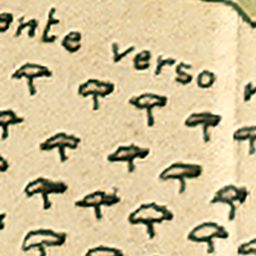 ente verso